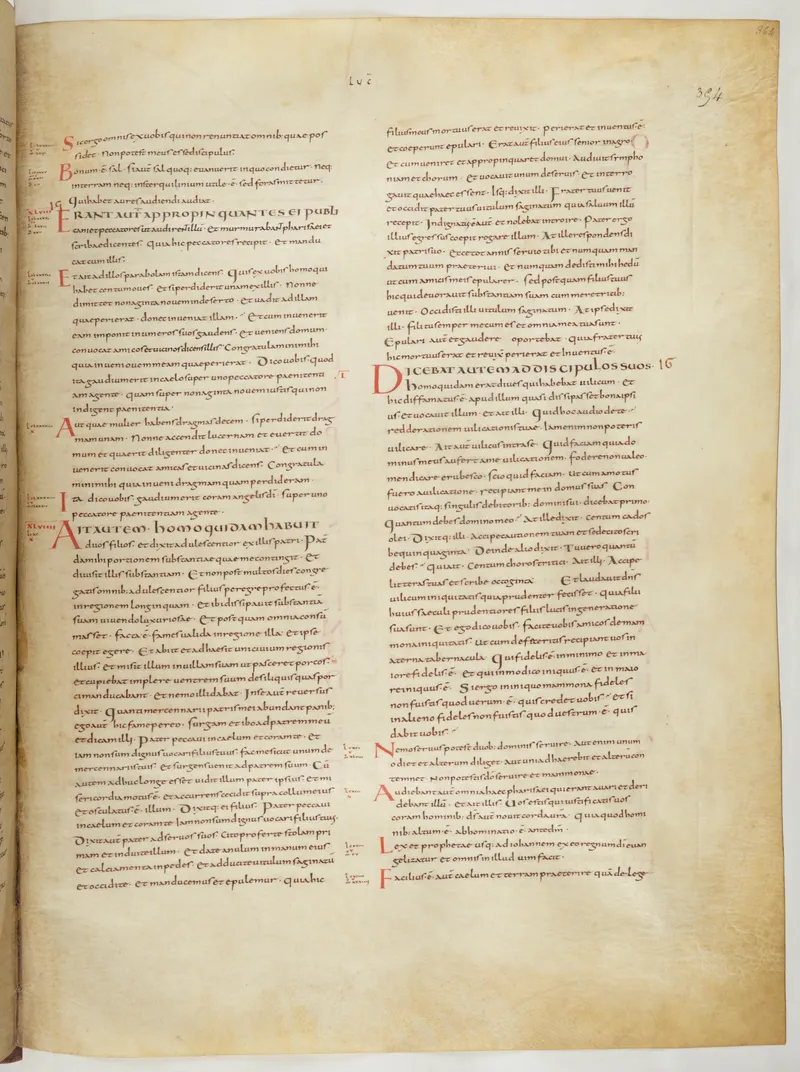 LUC̄
394
Sic ergo omnis ex vobis qui non renuntiat omnib: quae pos
sidet · Non potest meus esse discipulus·
Bonum · ē · sal · Si aūt sal quoq: evanuerit in quo condietur · neq:
in terram neq: in sterquilinium utile · ē · sed foras mittetur·
Qui habet aures audiendi audiat ·
ERANT AUT APPROPINQUANTES EI PUBLI
cani et peccatores ut audirent illū · Et murmurabant pharisaei et
scribae dicentes · Quia hic peccatores recipit · Et mandu
cat cum illis·
Et ait ad illos parabolam istam dicens · Quis ex vobis homo qui
habet centum oves · Et si perdiderit unam ex illis · Nonne
dimittet nonaginta novem in deserto · Et vadit ad illam
quae perierat · donec inveniat illam · Et cum invenerit
eam imponit in umeros suos gaudens · Et veniens domum
convocat amicos et vicinos dicens illis · Congratulamini mihi
quia inveni ovem meam quae perierat · Dico vobis quod
ita gaudium erit in caelo super uno peccatore paenitentiā
agente · quam super nonaginta novem iustis qui non
indigent paenitentia ·
Aut quae mulier habens dragmas decem · si perdiderit drag
mam unam · Nonne accendit lucernam et everrit do
mum et quaerit diligenter donec inveniat · Et cum in
venerit convocat amicas et vicinas dicens · Congratula
mini mihi quia inveni dragmam quam perdideram ·
Ita dico vobis gaudium erit coram angelis dī · super uno
peccatore paenitentiam agente ·
AIT AUTEM · HOMO QUIDAM HABUIT
duos filios · et dixit adulescentior ex illis patri · Pat̄
da mihi portionem substantiae quae me contingit · Et
divisit illis substantiam · Et non post multos dies congre
gatis omnib: adulescentior filius peregre profectus · ē ·
in regionem longinquam · Et ibi dissipavit substantiā
suam vivendo luxuriose · Et postquam omnia consū
masset · facta · ē · fames valida in regione illa · Et ipse
coepit egere · Et abiit et adhaesit uni civium regionis
illius · Et misit illum in villam suam ut pasceret porcos ·
Et cupiebat implere ventrem suum de siliquis quas por
ci manducabant · Et nemo illi dabat · In se aūt reversus
dixit · Quanti mercennarii patris mei abundant panib:
ego aūt hic fame pereo · Surgam et ibo ad patrem meū
et dicam illi · Pater peccavi in caelum et coram te · Et
iam non sum dignus vocari filius tuus · fac me sicut unum de
mercennariis tuis · Et surgens venit ad patrem suum · Cū
autem adhuc longe esset vidit illum pater ipsius · Et mi
sericordia motus · ē · et accurrens cecidit supra collum eius
et osculatus · ē · illum · Dixitq: ei filius · Pater peccavi
in caelum et coram te iam non sum dignus vocari filius tuus·
Dixit aūt pater ad servos suos · Cito proferte stolam pri
mam et induite illum · Et date anulum in manum eius
et calciamenta in pedes · Et adducite vitulum saginatū
et occidite · Et manducemus et epulemur · quia hic
filius meus mortuus erat et revixit · perierat et inventus · ē ·
et coeperunt epulari · Erat aūt filius eius senior in agro
Et cum veniret et appropinquaret domui · Audivit sympho
niam et chorum · Et vocavit unum de servis · Et interro
gavit quae haec essent · Isq: dixit illi · Frater tuus venit
et occidit pater tuus vitulum saginatum · quia salvum illū
recepit · Indignatus · ē aūt · et nolebat introire · Pater ergo
illius egressus coepit rogare illum · At ille respondens di
xit patri suo · Ecce tot annis servio tibi et numquam man
datum tuum praeterivi · Et numquam dedisti mihi hedū
ut cum amicis meis epularer · Sed postquam filius tuus
hic qui devoravit substantiam suam cum meretricib:
venit · Occidisti illi vitulum saginatum · At ipse dixit
illi · fili tu semper mecum es et omnia mea tua sunt ·
Epulari aūt et gaudere oportebat · quia frater tuus
hic mortuus erat et revix̄ perierat et inventus · ē ·
DICEBAT AUTEM AD DISCIPULOS SUOS · 16
Homo quidam erat dives qui habebat vilicum · Et
hic diffamatus · ē · apud illum quasi dissipasset bona ipsi
us · et vocavit illum · Et ait illi · Quid hoc audio de te ·
redde rationem vilicationis tuae · Iam enim non poteris
vilicare · Ait aūt vilicus intra se · Quid faciam quia do
minus meus aufert a me vilicationem · fodere non valeo ·
mendicare erubesco · scio quid faciam · Ut cum amotus
fuero a vilicatione · recipiant me in domus suas · Con
vocatis itaq: singulis debitorib: domini sui · dicebat primo ·
Quantum debes domino meo · At ille dixit · Centum cados
olei · Dixitq: illi · Accipe cautionem tuam et sede cito scri
be quinquaginta · Deinde alio dixit · Tu vero quantū
debes · Qui ait · Centum choros tritici · Ait illi · Accipe
litteras tuas et scribe octoginta · Et laudavit dn̄s
vilicum iniquitatis quia prudenter fecisset · Quia filii
huius saeculi prudentiores filiis lucis in generatione
sua sunt · Et ego dico vobis · facite vobis amicos de mam
mona iniquitatis · Ut cum defeceritis recipiant vos in
aeterna tabernacula · Qui fidelis · ē · in minimo et in ma
iore fidelis · ē · Et qui in modico iniquus · ē · et in maio
re iniquus · ē · Si ergo in iniquo mammona fideles
non fuistis quod verum · ē · quis credet vobis · Et si
in alieno fideles non fuistis quod vestrum · ē · quis
dabit vobis ·
Nemo servus potest duob: dominis servire · Aut enim unum
odiet et alterum diliget · Aut uni adhaerebit et alterum con
temnet · Non potestis dō servire et mammonae ·
Audiebant aūt omnia haec pharisaei qui erant avari et deri
debant illū · Et ait illis · Vos estis qui iustificatis vos
coram hominib: d̄s aūt novit corda vr̄a · Quia quod homi
nib: altum · ē · abhominatio · ē · ante dm̄ ·
Lex et prophetae usq: ad iohannem ex eo regnum dī evan
gelizatur et omnis in illud vim facit ·
Facilius · ē · aūt caelum et terram praeterire quā de lege